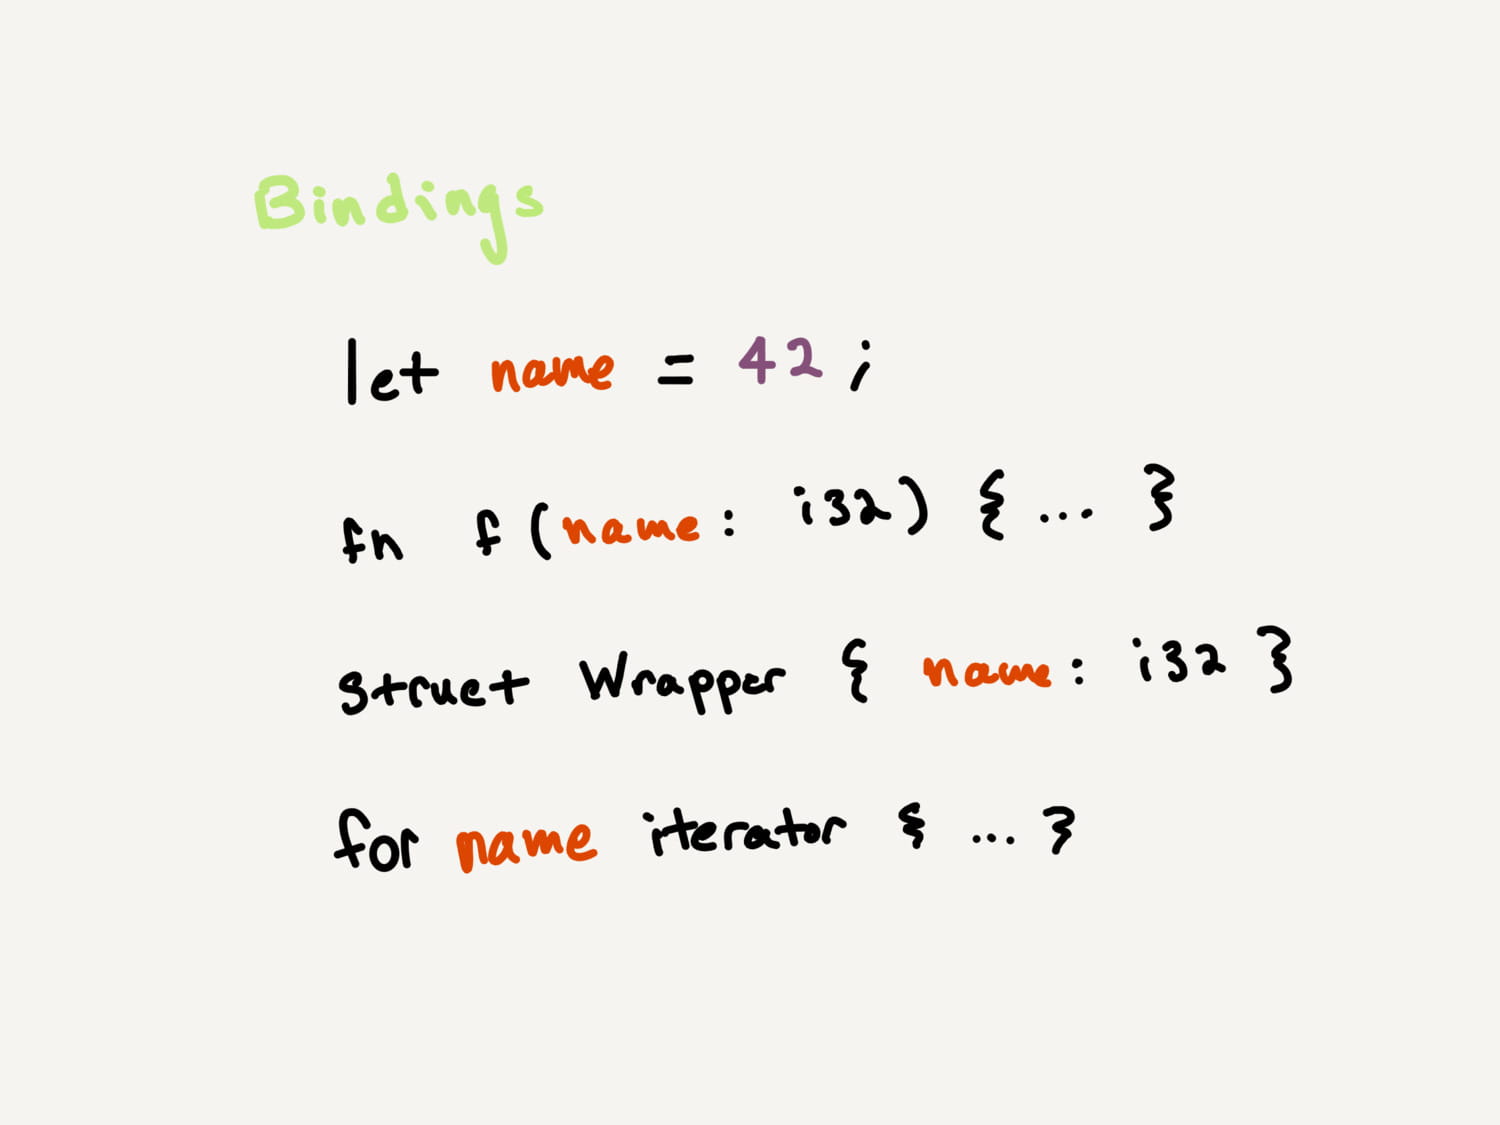 Bindings
let name = 42;
fn f(name: i32) { ... }
struct Wrapper { name: i32 }
for name iterator { ... }